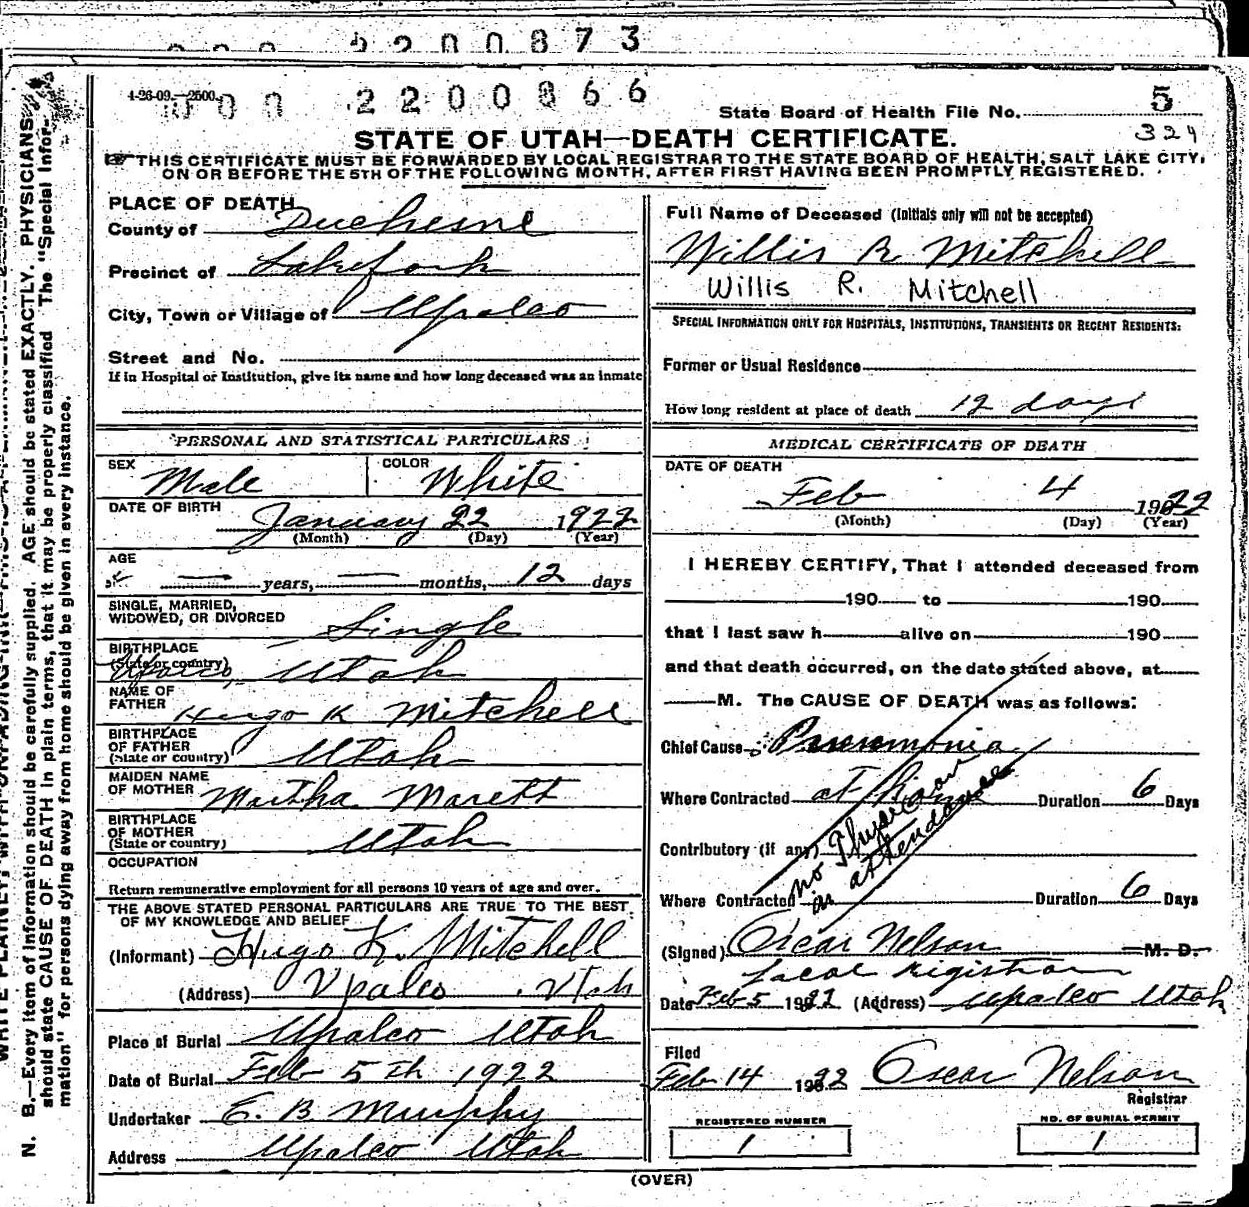 2200873
4-26-09.—2500.
000 2200866
State Board of Health File No. 5
324
STATE OF UTAH—DEATH CERTIFICATE.
☞THIS CERTIFICATE MUST BE FORWARDED BY LOCAL REGISTRAR TO THE STATE BOARD OF HEALTH, SALT LAKE CITY,
ON OR BEFORE THE 5TH OF THE FOLLOWING MONTH, AFTER FIRST HAVING BEEN PROMPTLY REGISTERED.
PLACE OF DEATH
County of Duchesne
Precinct of Lakefork
City, Town or Village of Upalco
Street and No.
If in Hospital or Institution, give its name and how long deceased was an inmate
PERSONAL AND STATISTICAL PARTICULARS
SEX Male COLOR White
DATE OF BIRTH January 22 1922
(Month) (Day) (Year)
AGE
— years, — months, 12 days
SINGLE, MARRIED,
WIDOWED, OR DIVORCED Single
BIRTHPLACE
(State or country) Upalco, Utah
NAME OF
FATHER Hugo K Mitchell
BIRTHPLACE
OF FATHER
(State or country) Utah
MAIDEN NAME
OF MOTHER Martha Marett
BIRTHPLACE
OF MOTHER
(State or country) Utah
OCCUPATION
Return remunerative employment for all persons 10 years of age and over.
THE ABOVE STATED PERSONAL PARTICULARS ARE TRUE TO THE BEST
OF MY KNOWLEDGE AND BELIEF
(Informant) Hugo K. Mitchell
(Address) Upalco, Utah
Place of Burial Upalco Utah
Date of Burial Feb 5th 1922
Undertaker E. B. Murphy
Address Upalco Utah
Full Name of Deceased (Initials only will not be accepted)
Willis R Mitchell
Willis R. Mitchell
SPECIAL INFORMATION ONLY FOR HOSPITALS, INSTITUTIONS, TRANSIENTS OR RECENT RESIDENTS:
Former or Usual Residence
How long resident at place of death 12 days
MEDICAL CERTIFICATE OF DEATH
DATE OF DEATH
Feb 4 1922
(Month) (Day) (Year)
I HEREBY CERTIFY, That I attended deceased from
190 to 190
that I last saw h alive on 190
and that death occurred, on the date stated above, at
M. The CAUSE OF DEATH was as follows:
Chief Cause Pneumonia
Where Contracted at Home Duration 6 Days
Contributory (if any)
no Physician
in attendance
Where Contracted Duration 6 Days
(Signed) Oscar Nelson M. D.
Local registrar
Date Feb 5 1922 (Address) Upalco Utah
Filed
Feb 14 1922 Oscar Nelson
Registrar
REGISTERED NUMBER
1
NO. OF BURIAL PERMIT
1
(OVER)
N. B.—Every item of information should be carefully supplied. AGE should be stated EXACTLY. PHYSICIANS
should state CAUSE OF DEATH in plain terms, that it may be properly classified The "Special Infor-
mation" for persons dying away from home should be given in every instance.